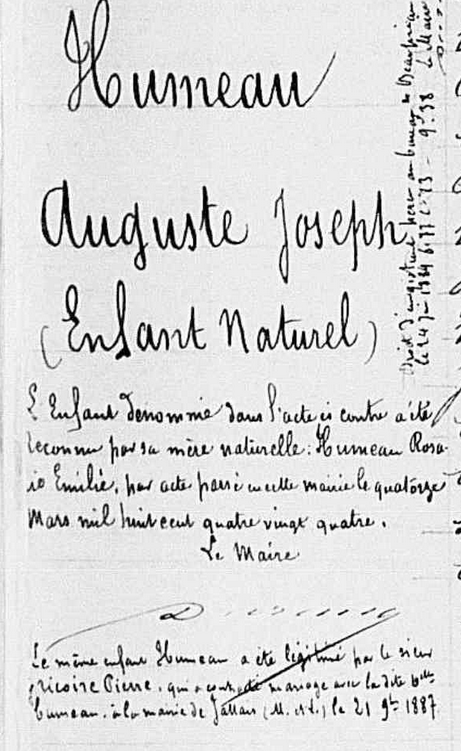 Humeau
Auguste Joseph
(Enfant Naturel)
L'Enfant dénommé dans l'acte ci contre a été
reconnu par sa mère naturelle : Humeau Rosa-
ie Emilie, par acte passé en cette mairie le quatorze
Mars mil huit cent quatre vingt quatre.
Le Maire
Le même enfant Humeau a été légitimé par le sieur
Pierre, qui a contracté mariage avec la dite
Humeau, à la mairie de Jallais (M. et L.) le 21 9bre 1887
Droit d'enregistrement au bureau de Beaupréau
le 24 juin 1884 9f 38